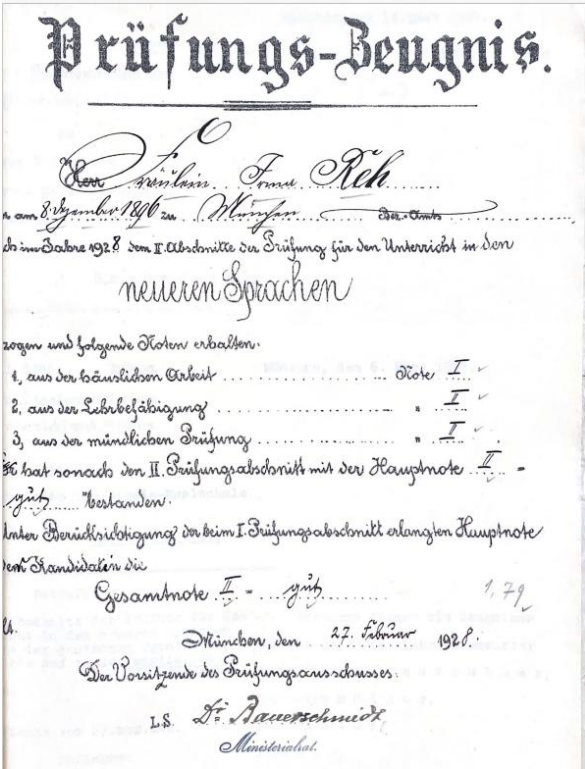 Prüfungs-Zeugnis.
Herr Fräulein Irma Reh
n am 8. Dezember 1896 zu München Bez.-Amts
ch im Jahre 1928 dem II. Abschnitte der Prüfung für den Unterricht in den
neueren Sprachen
zogen und folgende Noten erhalten:
1, aus der häuslichen Arbeit .......... Note I
2, aus der Lehrbefähigung .......... " II
3, aus der mündlichen Prüfung .......... " II
hat sonach den II. Prüfungsabschnitt mit der Hauptnote II -
gut bestanden.
Unter Berücksichtigung der beim I. Prüfungsabschnitt erlangten Hauptnote
dem Kandidaten die
Gesamtnote II - gut 1,79
lt.
München, den 27. Februar 1928.
Der Vorsitzende des Prüfungsausschusses.
L.S. Dr. Bauerschmidt
Ministerialrat.